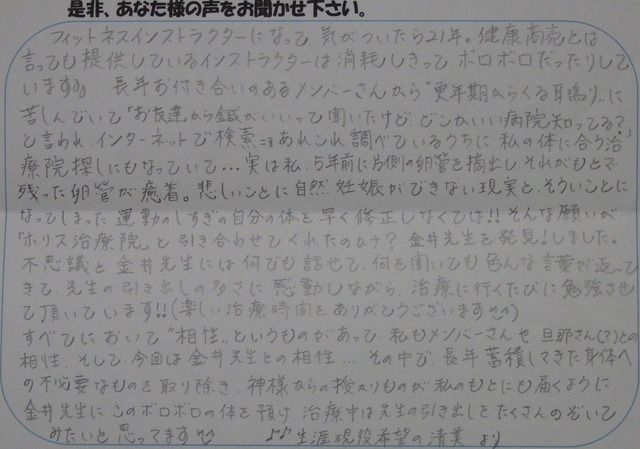 是非、あなた様の声をお聞かせ下さい。
フィットネスインストラクターになって 気がついたら21年。健康商売とは
言っても提供しているインストラクターは消耗しきって、ボロボロだったりして
います 長年お付き合いのあるメンバーさんから"更年期からくる耳鳴り"に
苦しんでいて「お友達から鍼がいいって聞いたけど、どこかいい病院知ってる?」
と言われ、インターネットで検索 あれこれ調べているうちに 私の体に合う治
療院探しにもなっていて…実は私、5年前に片側の卵管を摘出し、それがもとで、
残った卵管が癒着。悲しいことに自然妊娠ができない現実と、そういうことに
なってしまった 運動のしすぎの自分の体を早く修正しなくては!! そんな願いが
「ホリス治療院」と引き合わせてくれたのか? 金井先生を発見!しました。
不思議と金井先生には何でも話せて、何を聞いても色んな言葉が返って
きて、先生の引き出しの多さに感動しながら、治療に行くたびに勉強させ
て頂いています!!(楽しい治療時間をありがとうございます)
すべてにおいて"相性"というものがあって、私もメンバーさんや旦那さん(?)との
相性、そして、今回は金井先生との相性… その中で、長年蓄積してきた身体へ
の不必要なものを取り除き、神様からの授かりものが私のもとにも届くように
金井先生にこのボロボロの体を預け、治療中は先生の引き出しをたくさんのぞいて
みたいと思ってます ♪♪生涯現役希望の清美 より